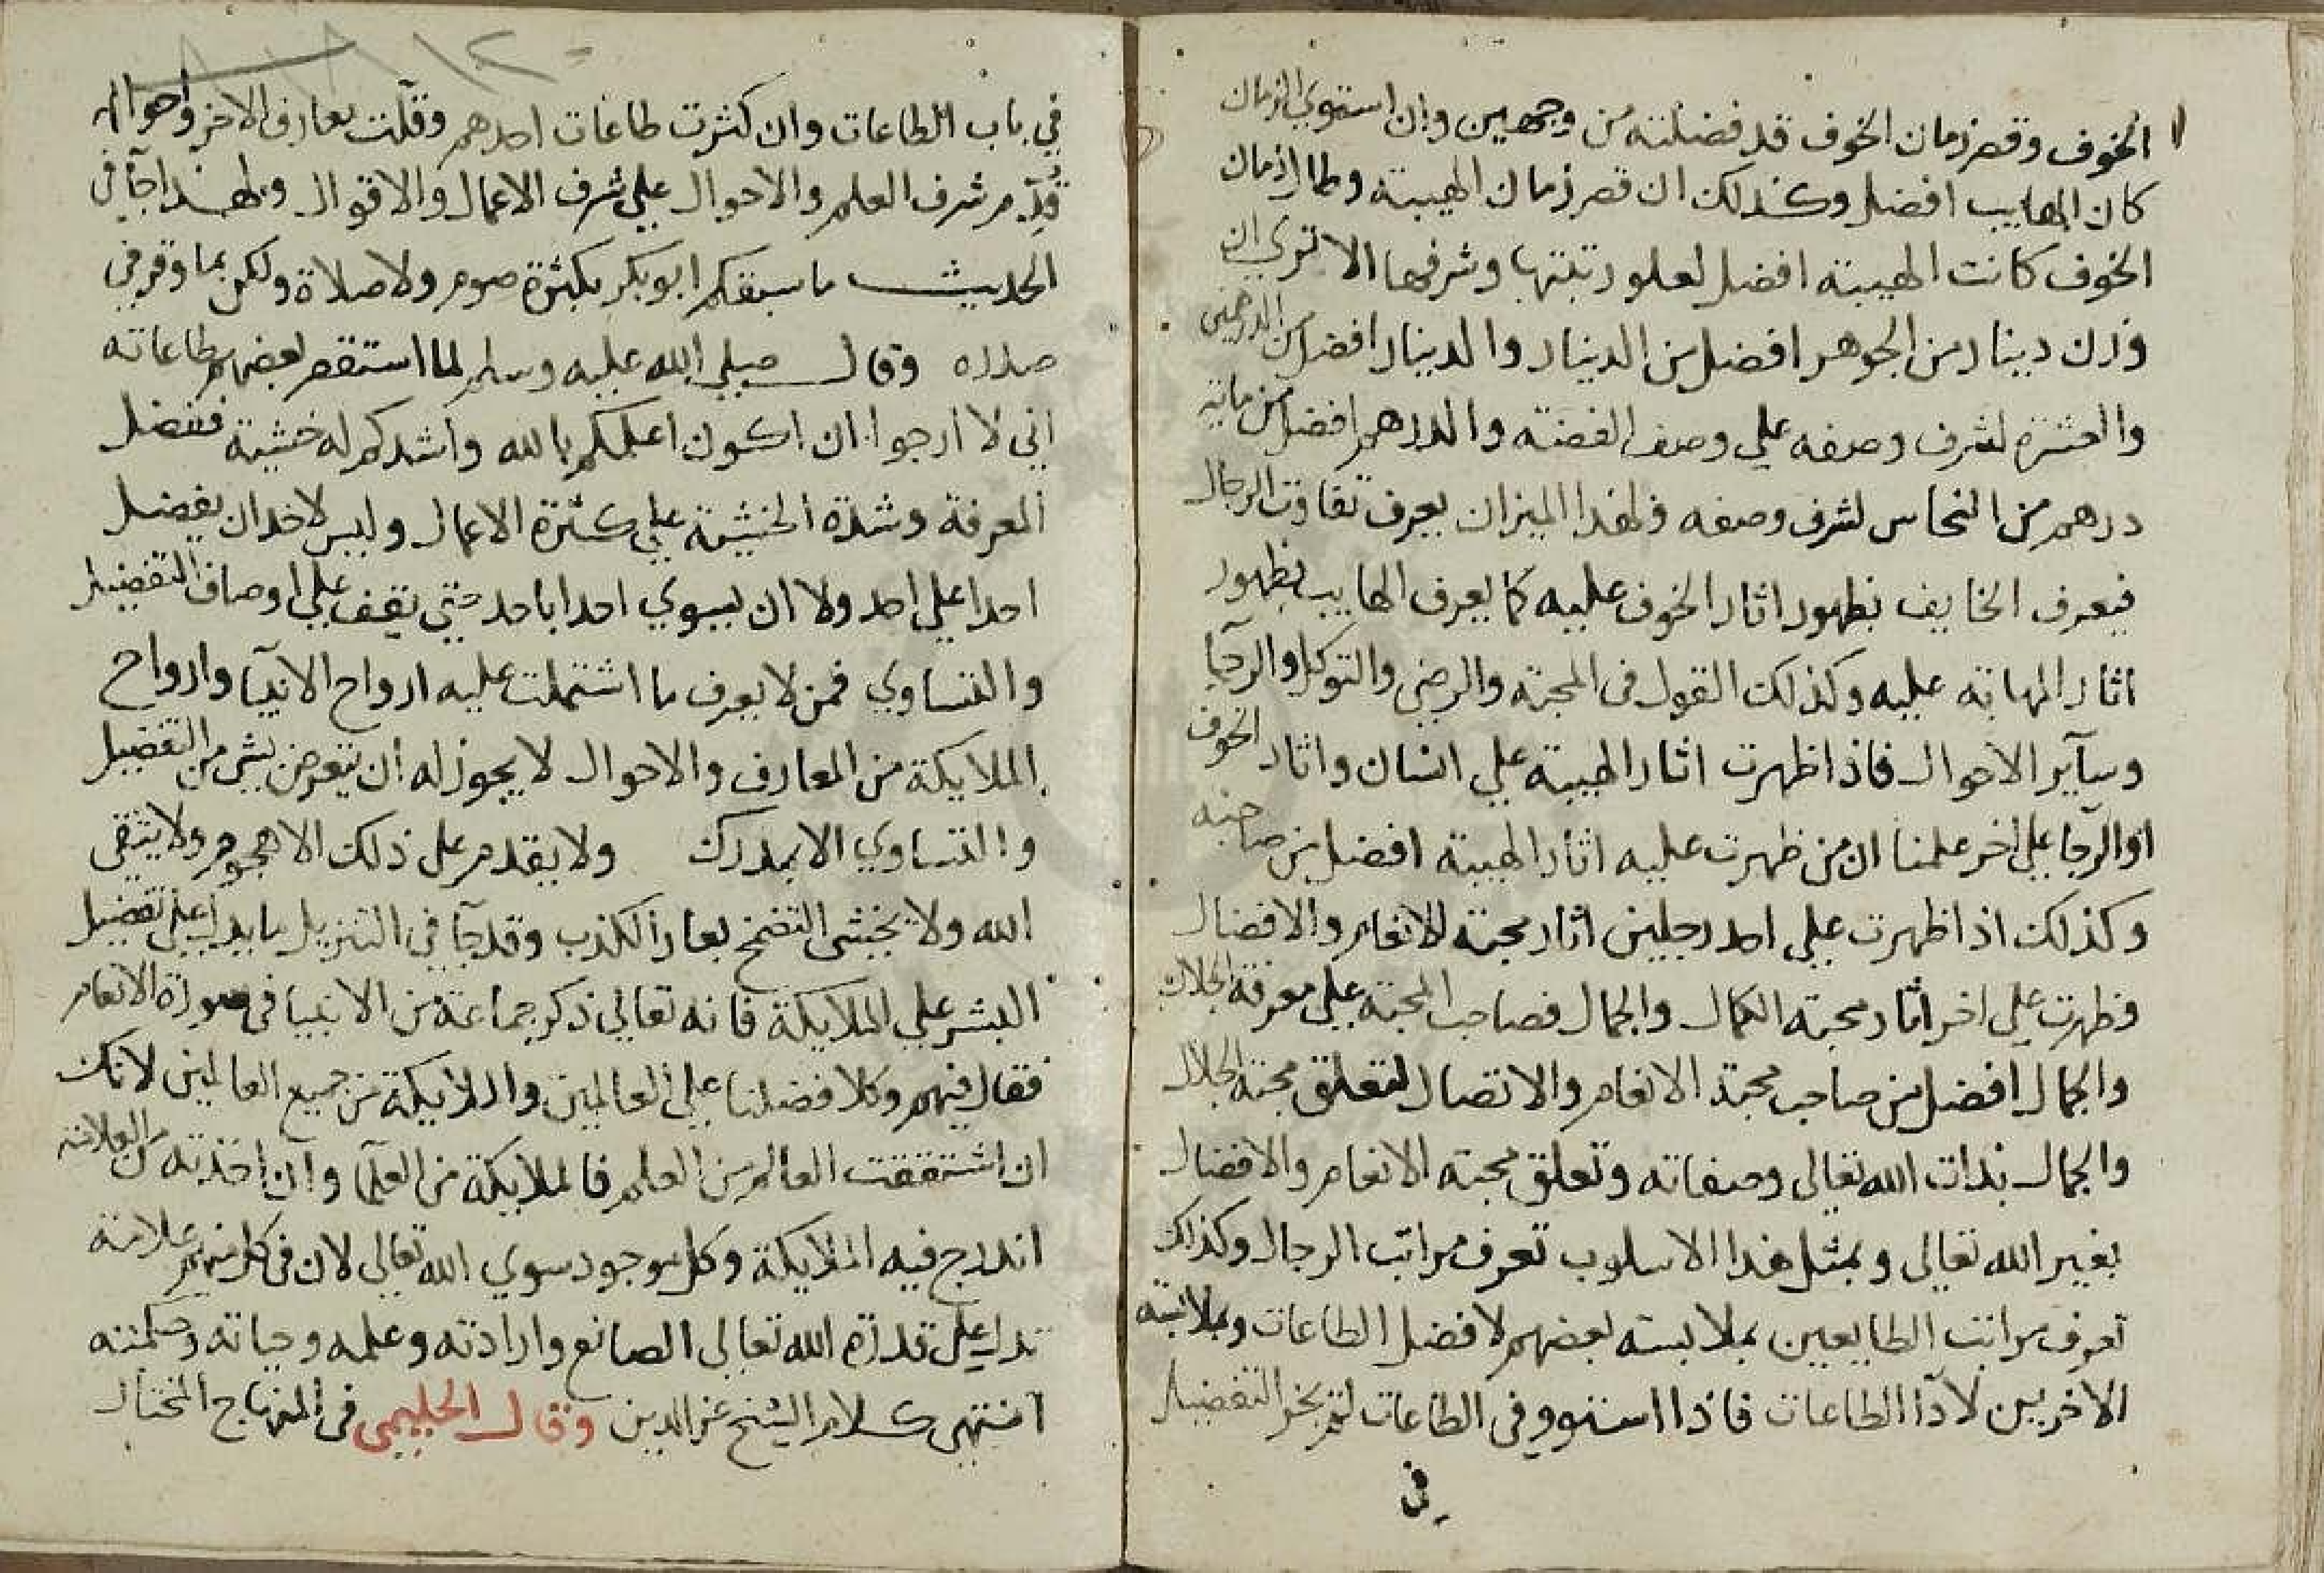 الخوف وقصر زمان الخوف قد فضلته من وجهين وان استوي الزمان
كان الهايب افضل وكذلك ان قصر زمان الهيبته وطال زمان
الخوف كانت الهيبته افضل لعلو رتبتها وشرفها الا تري ان
وزن دينار من الجوهر افضل من الدينار والدينار افضل من الدرهمين
والعشرة لشرف وصفه علي وصف الفضته والدرهم افضل من ماية
درهم من النحاس لشرف وصفه وبهذا الميزان يعرف تفاوت الرجال
فيعرف الخايف بظهور اثار الخوف عليه كما يعرف الهايب بظهور
اثار المهابة عليه وكذلك القول في المحبته والرضي والتوكل والرجآ
وسآير الاحوال فاذا ظهرت اثار الهيبته علي انسان واثار الخوف
او الرجا علي اخر علمنا ان من ظهرت عليه اثار الهيبتة افضل من صاحبه
وكذلك اذا ظهرت علي احد رجلين اثار محبته الانعام والافضال
وظهرت علي اخر اثار محبته الكمال والجمال فصاحب المحبته علي معرفة الجلال
والجمال افضل من صاحب محبة الانعام والاتصال لتعلق محبته الجلال
والجمال بذات الله تعالى وصفاته وتعلق محبته الانعام والافضال
بغير الله تعالى وبمثل هذا الاسلوب تعرف مراتب الرجال وكذلك
تعرف مراتب الطايعين بملابسته بعضهم لافضل الطاعات وبملابسته
الاخريين لادآ الطاعات فاذا استووفي الطاعات لم يجز التفضيل
في
في باب الطاعات وان كثرت طاعات احدهم وقلت معارف الاخر واحواله
قدم شرف العلم والاحوال علي شرف الاعمال والاقوال ولهذا جآ في
الحديث ما سبقكم ابوبكر بكثرة صوم ولا صلاة ولكن بما وقر في
صدره وقال صلي الله عليه وسلم لما استقصر بعضهم طاعاته
اني لا ارجوا ان اكون اعلمكم بالله واشدكم له خشية ففضل
المعرفة وشدة الخشية علي كثرة الاعمال وليس لاحد ان يفضل
احدا علي احد ولا ان يسوي احدا باحد حتي يقف علي اوصاف التفضيل
والتساوي فمن لا يعرف ما اشتملت عليه ارواح الانبيآ وارواح
الملايكة من المعارف والاحوال لا يجوز له ان يتعرض بشي من التفضيل
والتساوي الا بمدرك ولا يقدم على ذلك الا هجوم ولا يتقي
الله ولا يخشى التضمخ بعار الكذب وقد جآ في التنزيل ما يدل علي تفضيل
البشر علي الملايكة فانه تعالي ذكر جماعة من الانبيا في سورة الانعام
فقال فيهم وكلا فضلنا علي العالمين والملايكة من جميع العالمين لانك
ان اشتققت العالم من العلم فالملايكة من العلمآ وان اخذته من العلامة
اندرج فيه الملايكة وكل موجود سوي الله تعالي لان في كل منهم علامة
تدل علي قدرة الله تعالي الصانع وارادته وعلمه وحياته وحكمته
انتهى كلام الشيخ عز الدين وقال الحليمي في المنهاج المختار